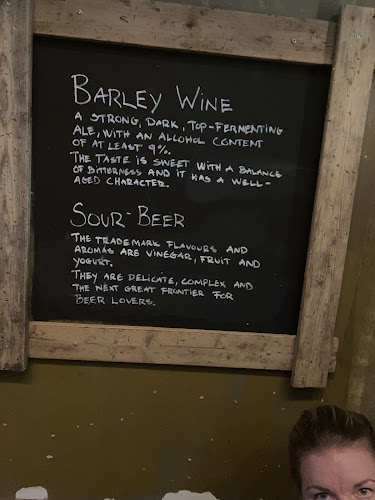 BARLEY WINE
A STRONG, DARK, TOP-FERMENTING
ALE, WITH AN ALCOHOL CONTENT
OF AT LEAST 9%.
THE TASTE IS SWEET WITH A BALANCE
OF BITTERNESS AND IT HAS A WELL-
AGED CHARACTER.
SOUR-BEER
THE TRADEMARK FLAVOURS AND
AROMAS ARE VINEGAR, FRUIT AND
YOGURT.
THEY ARE DELICATE, COMPLEX AND
THE NEXT GREAT FRONTIER FOR
BEER LOVERS.